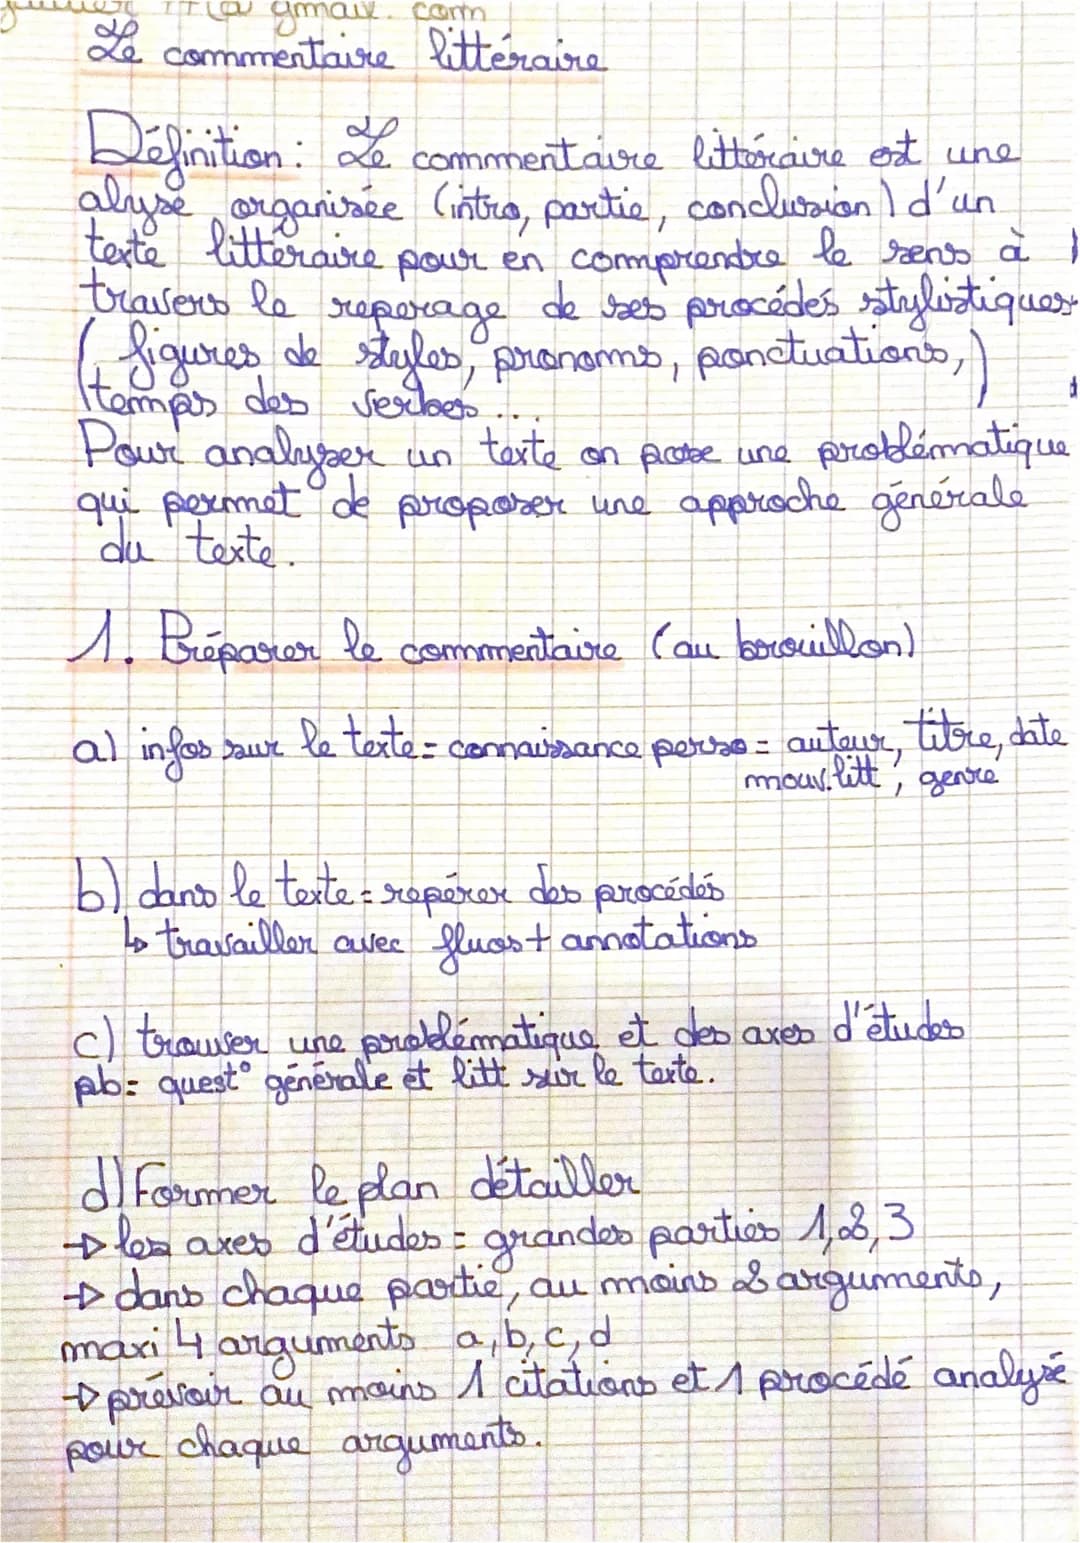 gmail.com
Le commentaire littéraire
Définition : Le commentaire littéraire est une
alyse organisée (intro, partie, conclusion) d'un
texte littéraire pour en comprendre le sens à
travers le reperage de ses procédés stylistiques
( figures de styles, pronoms, ponctuations, )
temps des verbes...
Pour analyser un texte on pose une problématique
qui permet de proposer une approche générale
du texte.
1. Préparer le commentaire (au brouillon)
a) infos sur le texte = connaissance perso = auteur, titre, date
mouv. litt, genre
b) dans le texte = repérer des procédés
↳ travailler avec fluos + annotations
c) trouver une problématique et des axes d'études
pb = quest° générale et litt sur le texte.
d) Former le plan détailler
→ les axes d'études = grandes parties 1, 2, 3
→ dans chaque partie, au moins 2 arguments,
maxi 4 arguments a, b, c, d
→ prévoir au moins 1 citations et 1 procédé analysé
pour chaque arguments.